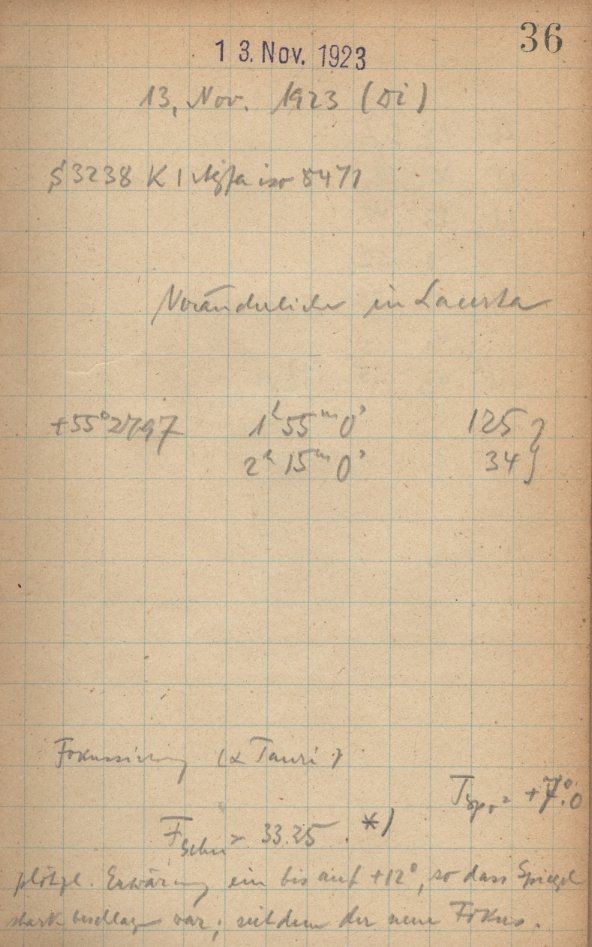 36
13. Nov. 1923
13. Nov. 1923 (Di)
S 3238 K I Agfa iso 8471
Veränderlicher in Lacerta
+55° 2797 1ʰ 55ᵐ 0ˢ 125 }
2ʰ 15ᵐ 0ˢ 34 }
Fokussierung (α Tauri)
T Sp. = +7°.0
F Schn = 33.25 *)
plötzl. Erwärmung ein bis auf +12°, so dass Spiegel
stark beschlagen war; seitdem der neue Fokus.